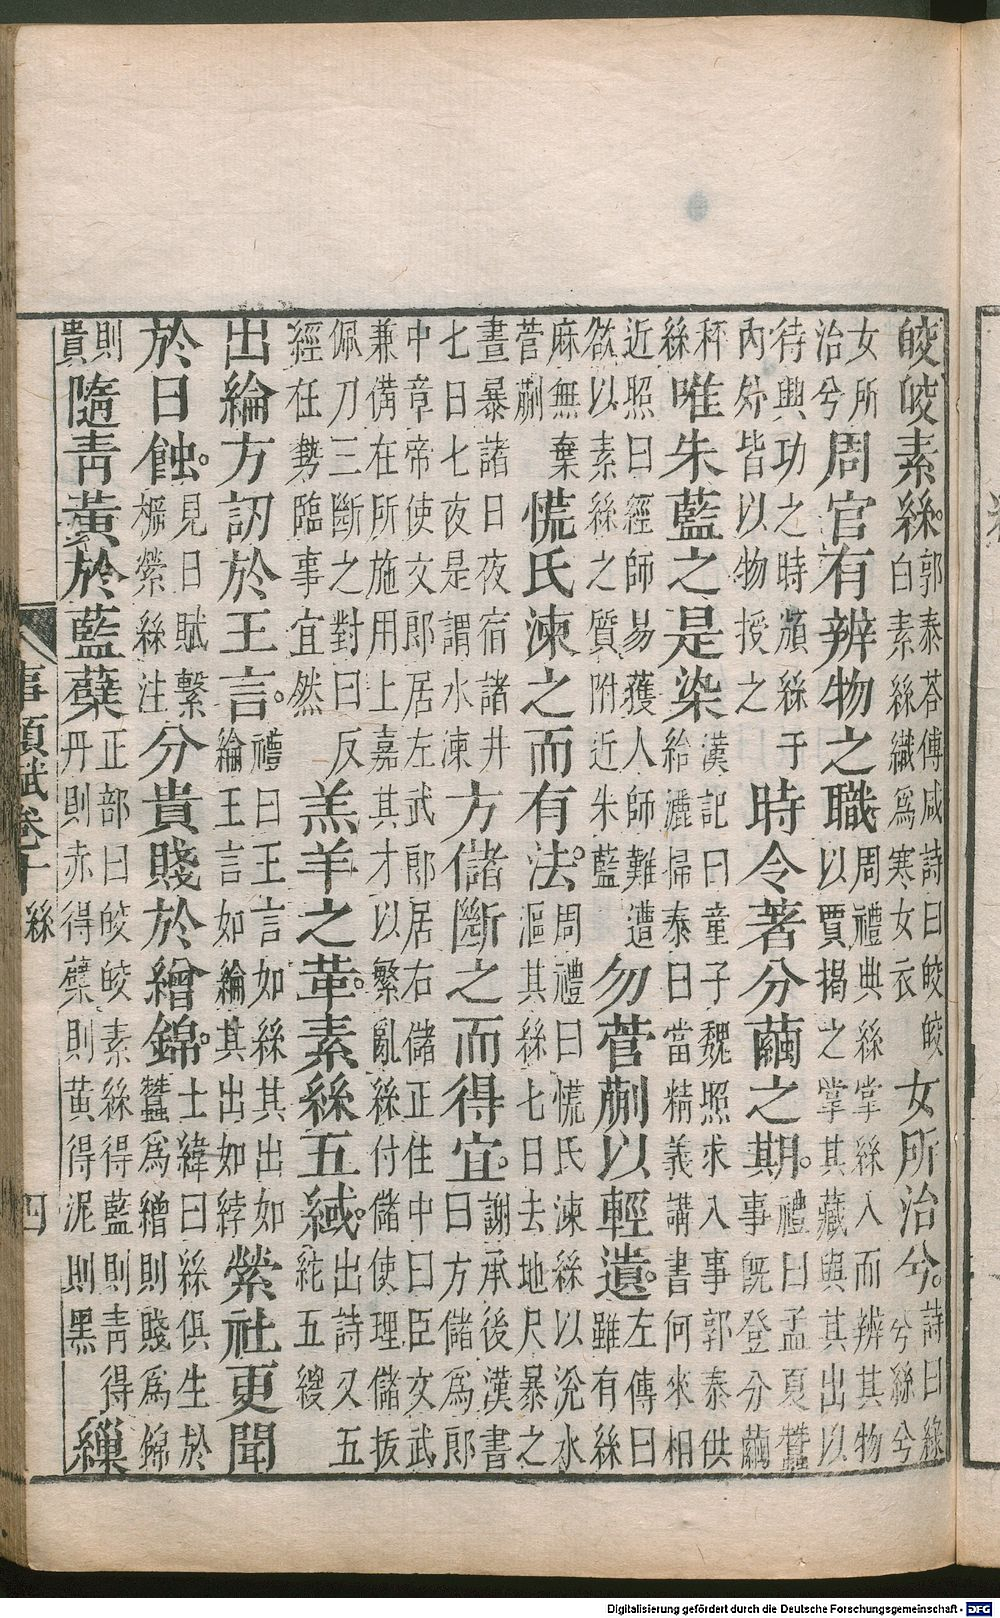 皎皎素絲。郭泰荅傅咸詩曰皎皎白素絲纖爲寒女衣女所治兮。詩曰綠兮絲兮
女所治兮周官有辨物之職周禮典絲掌絲入而辨其物以賈揭之掌其藏與其出以
待興功之時頒絲于內外皆以物授之時令著分繭之期。禮曰孟夏蠶事旣登分繭
秤絲唯朱藍之是染漢記曰童子魏照求入事郭泰供給灑掃泰曰當精義講書何來相
近照曰經師易獲人師難遭欲以素絲之質附近朱藍勿菅蒯以輕遺。左傳曰雖有絲
麻無棄菅蒯㡆氏湅之而有法。周禮曰㡆氏湅絲以涗水漚其絲七日去地尺暴之
晝暴諸日夜宿諸井七日七夜是謂水湅方儲斷之而得宜。謝承後漢書曰方儲爲郎
中章帝使文郎居左武郎居右儲正住中曰臣文武兼備在所施用上嘉其才以繁亂絲付儲使理儲拔
佩刀三斷之對曰反經任勢臨事宜然羔羊之革。素絲五緎。出詩又五紽五緵
出綸方訒於王言。禮曰王言如絲其出如綸王言如綸其出如綍縈社更聞
於日蝕。見日賦繫櫋縈絲注分貴賤於繪錦。士緯曰絲俱生於蠶爲繒則賤爲錦
則貴隨青黃於藍蘗正部曰皎皎素絲得藍則青得丹則赤得蘗則黃得泥則黑繅
事類賦卷十 絲 四
Digitalisierung gefördert durch die Deutsche Forschungsgemeinschaft - DFG